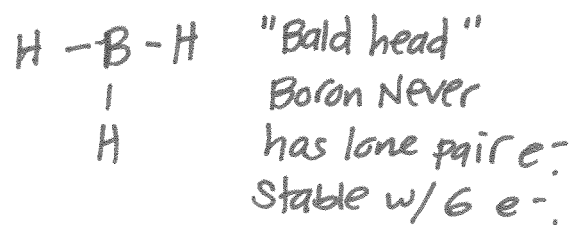 H - B - H
|
H
"Bald head"
Boron Never
has lone pair e-.
Stable w/ 6 e-.